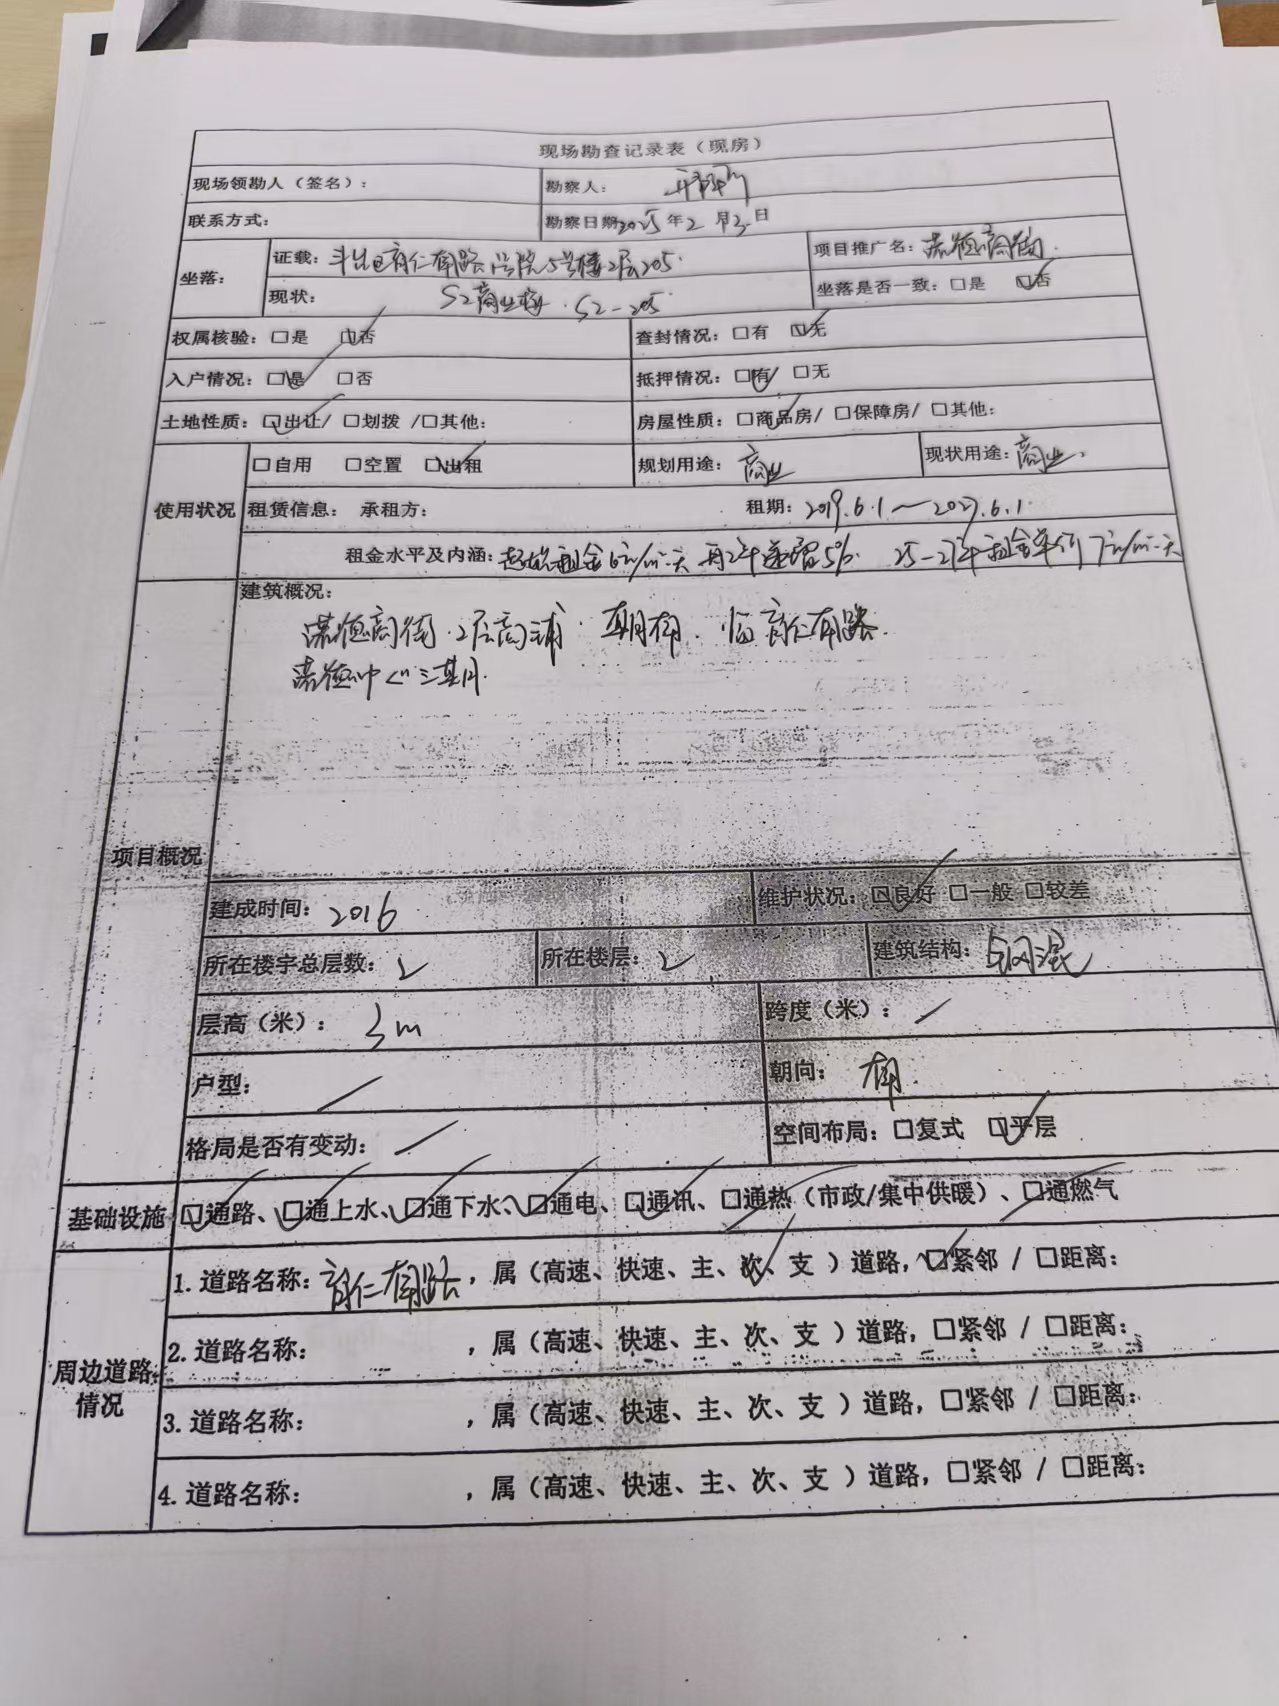 现场勘查记录表（现房）
现场领勘人（签名）： 勘察人：
联系方式： 勘察日期2025年2月3日
坐落： 证载： 育仁南路 号院5号楼2层205 项目推广名： 德商街
现状： S2商业楼·S2-205 坐落是否一致：□是 ☑否
权属核验：□是 ☑否 查封情况：□有 ☑无
入户情况：☑是 □否 抵押情况：☑有/ □无
土地性质：☑出让/ □划拨 /□其他： 房屋性质：☑商品房/ □保障房/ □其他：
使用状况 □自用 □空置 ☑出租 规划用途：商业 现状用途：商业
租赁信息： 承租方： 租期：2019.6.1～2027.6.1
租金水平及内涵：起始租金6元/㎡·天 每2年递增5% 25-27年租金单价7元/㎡·天
项目概况 建筑概况：
德商街·2层商铺·朝南·临育仁南路
德中心三期
建成时间：2016 维护状况：☑良好 □一般 □较差
所在楼宇总层数：2 所在楼层：2 建筑结构：钢混
层高（米）：3m 跨度（米）：/
户型：/ 朝向：南
格局是否有变动：/ 空间布局：□复式 ☑平层
基础设施 ☑通路、☑通上水、☑通下水、☑通电、☑通讯、☑通热（市政/集中供暖）、☑通燃气
周边道路情况 1.道路名称：育仁南路，属（高速、快速、主、次、支 ）道路，☑紧邻 / □距离：
2.道路名称： ，属（高速、快速、主、次、支 ）道路，□紧邻 / □距离：
3.道路名称： ，属（高速、快速、主、次、支 ）道路，□紧邻 / □距离：
4.道路名称： ，属（高速、快速、主、次、支 ）道路，□紧邻 / □距离：